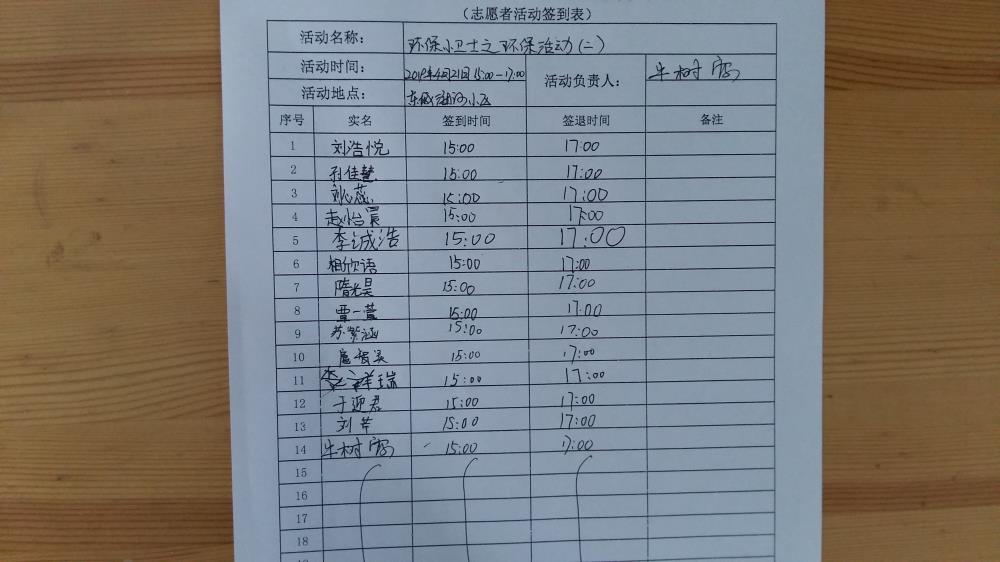 （志愿者活动签到表）
活动名称： 环保小卫士之环保活动(二)
活动时间： 2019年4月21日 15:00-17:00 活动负责人： 牛树
活动地点： 小区
序号 实名 签到时间 签退时间 备注
1 刘浩悦 15:00 17:00
2 孙佳慧 15:00 17:00
3 刘蕊 15:00 17:00
4 赵怡晨 15:00 17:00
5 李诚浩 15:00 17:00
6 相欣语 15:00 17:00
7 隋昊 15:00 17:00
8 覃一萱 15:00 17:00
9 苏紫涵 15:00 17:00
10 15:00 17:00
11 李祥瑞 15:00 17:00
12 于迎君 15:00 17:00
13 刘芊 15:00 17:00
14 牛树 15:00 17:00
15
16
17
18